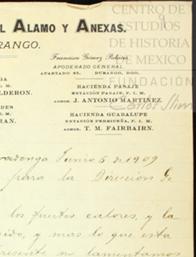 L ALAMO Y ANEXAS.
CENTRO DE
ESTUDIOS
DE HISTORIA
DE MEXICO
FUNDACIÓN
Carlos Slim
RANGO.
Francisco Gómez
APODERADO GENERAL
APARTADO 85. DURANGO, DGO.
HACIENDA PASAJE
ESTACIÓN PASAJE, F. I. M.
ADMOR. J. ANTONIO MARTINEZ.
HACIENDA GUADALUPE
ESTACIÓN PEDRICEÑA, F. I. M.
ADMOR. T. M. FAIRBAIRN.
LDERON.
DES
RAN.
Junio 5 de 1909
para la Direccion G
los fuertes calores, y la
y mas lo que esta
presente no lamentamos